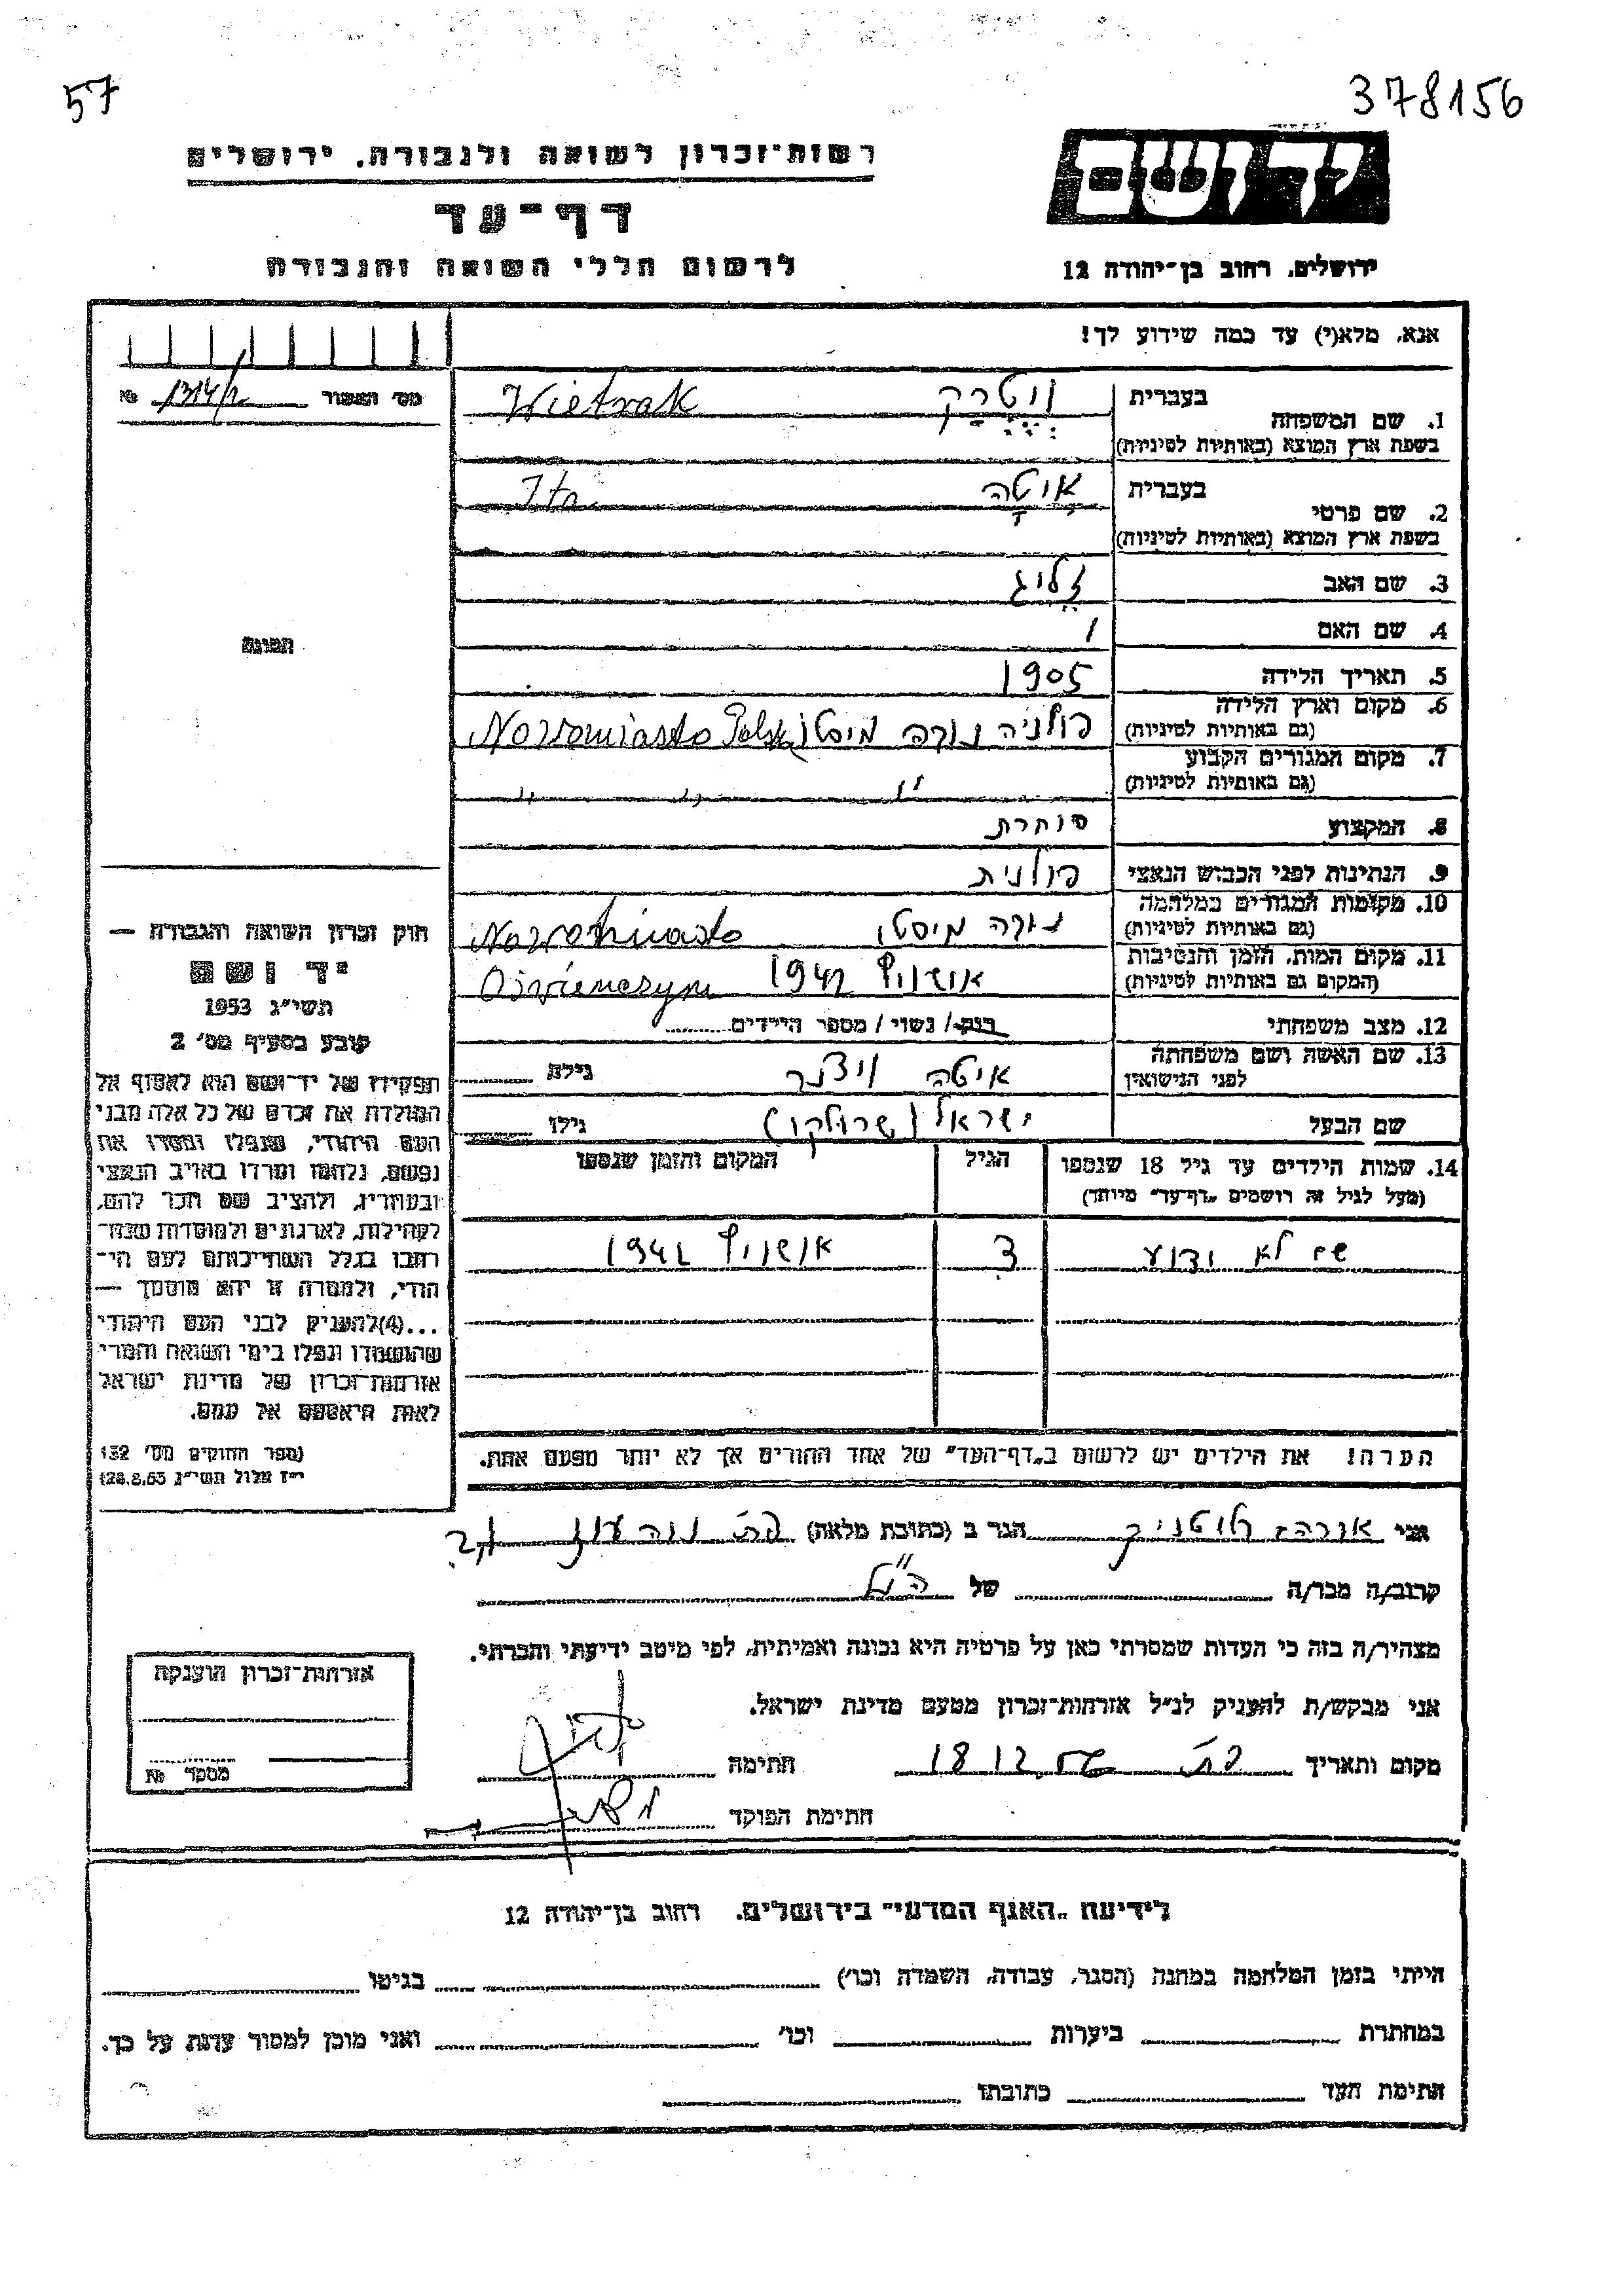 57
378156
רשות-זכרון לשואה ולגבורה, ירושלים
יד ושם
דף-עד
לרשום חללי השואה והגבורה
ירושלים, רחוב בן-יהודה 12
אנא, מלא(י) עד כמה שידוע לך!
מס' האשור 1314/2 №
1. שם המשפחה
בעברית ויטרק Wietrak
בשפת ארץ המוצא (באותיות לטיניות)
2. שם פרטי
בעברית איטה Ita
בשפת ארץ המוצא (באותיות לטיניות)
3. שם האב זליג
4. שם האם /
5. תאריך הלידה 1905
6. מקום וארץ הלידה פולניה נובה מיסטו Nowomiasto Polski
(גם באותיות לטיניות)
7. מקום המגורים הקבוע " " "
(גם באותיות לטיניות)
8. המקצוע סוחרת
9. הנתינות לפני הכבוש הנאצי פולנית
10. מקומות המגורים במלחמה נובה מיסטו Nowomiasto
(גם באותיות לטיניות)
11. מקום המות, הזמן והנסיבות אושויץ 1942
(המקום גם באותיות לטיניות)
12. מצב משפחתי רווק / נשוי / מספר הילדים
13. שם האשה ושם משפחתה איטה גילה
לפני הנישואין
שם הבעל ישראל (שרולקו) גילו
14. שמות הילדים עד גיל 18 שנספו הגיל המקום והזמן שנספו
(מעל לגיל זה רושמים "דף-עד" מיוחד)
שם לא ידוע 3 אושויץ 1942
הערה! את הילדים יש לרשום ב"דף-העד" של אחד ההורים אך לא יותר מפעם אחת.
התמונה
חוק זכרון השואה והגבורה —
יד ושם
תשי"ג 1953
קובע בסעיף מס' 2
תפקידו של יד-ושם הוא לאסוף אל
המולדת את זכרם של כל אלה מבני
העם היהודי, שנפלו ומסרו את
נפשם, נלחמו ומרדו באויב הנאצי
ובעוזריו, ולהציב שם וזכר להם,
לקהילות, לארגונים ולמוסדות שנח-
רבו בגלל השתייכותם לעם הי-
הודי, ולמטרה זו יהא מוסמך —
...(4) להעניק לבני העם היהודי
שהושמדו ונפלו בימי השואה והמרי
אזרחות-זכרון של מדינת ישראל
לאות היאספם אל עמם.
(ספר החוקים מס' 132
י"ז אלול תשי"ג 28.8.53)
אני הגר ב (כתובת מלאה)
קרוב/ה מכר/ה של הנ"ל
מצהיר/ה בזה כי העדות שמסרתי כאן על פרטיה היא נכונה ואמיתית, לפי מיטב ידיעתי והכרתי.
אני מבקש/ת להעניק לנ"ל אזרחות-זכרון מטעם מדינת ישראל.
מקום ותאריך 18.12 חתימה
חתימת הפוקד
אזרחות-זכרון הוענקה
מספר №
לידיעת "האגף המדעי" בירושלים, רחוב בן-יהודה 12
הייתי בזמן המלחמה במחנה (הסגר, עבודה, השמדה וכו') בגיטו
במחתרת ביערות וכו' ואני מוכן למסור עדות על כך.
חתימת העד כתובתו